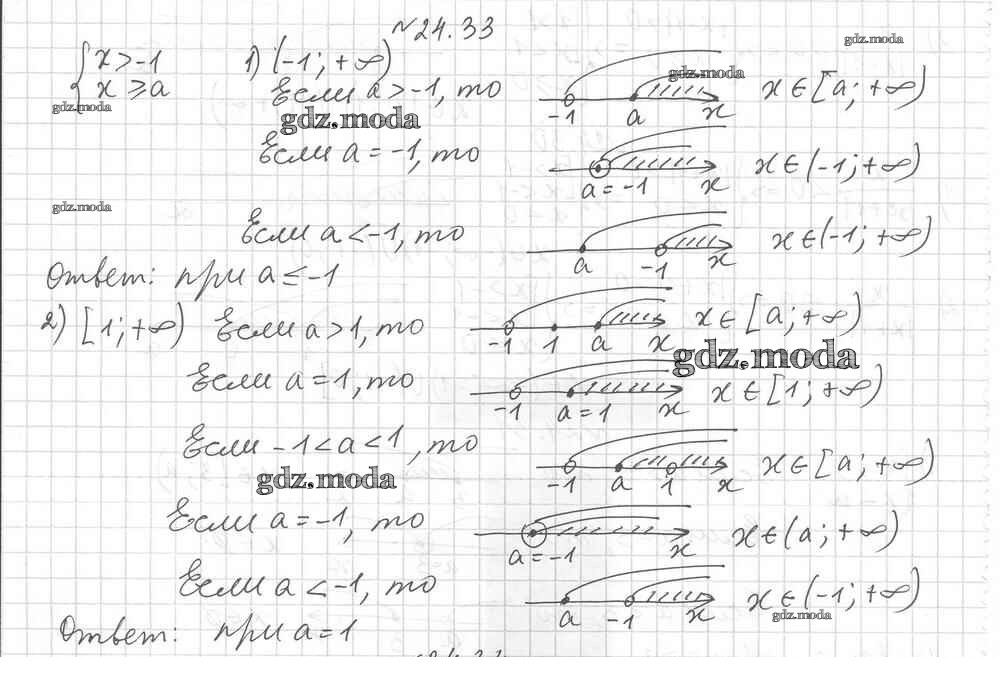 №24.33
{ x > -1
x ⩾ a
1) (-1; +∞)
Если a > -1, то
-1 a x
x ∈ [a; +∞)
Если a = -1, то
a = -1 x
x ∈ (-1; +∞)
Если a < -1, то
a -1 x
x ∈ (-1; +∞)
Ответ: при a ≤ -1
2) [1; +∞) Если a > 1, то
-1 1 a x
x ∈ [a; +∞)
Если a = 1, то
-1 a = 1 x
x ∈ [1; +∞)
Если -1 < a < 1, то
-1 a 1 x
x ∈ [a; +∞)
Если a = -1, то
a = -1 x
x ∈ (a; +∞)
Если a < -1, то
a -1 x
x ∈ (-1; +∞)
Ответ: при a = 1
gdz.moda
gdz.moda
gdz.moda
gdz.moda
gdz.moda
gdz.moda
gdz.moda
gdz.moda